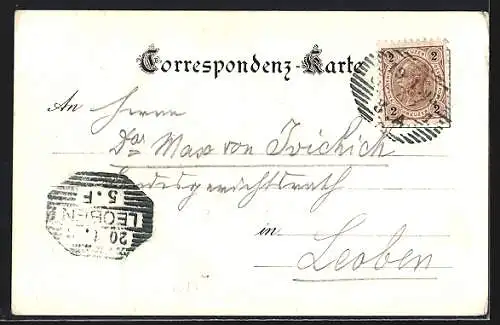 Correspondenz-Karte
2 2
2 2
An Herrn
Dr Max von
Landesgerichtsrath
in
Leoben
20
LEOBEN
5. F